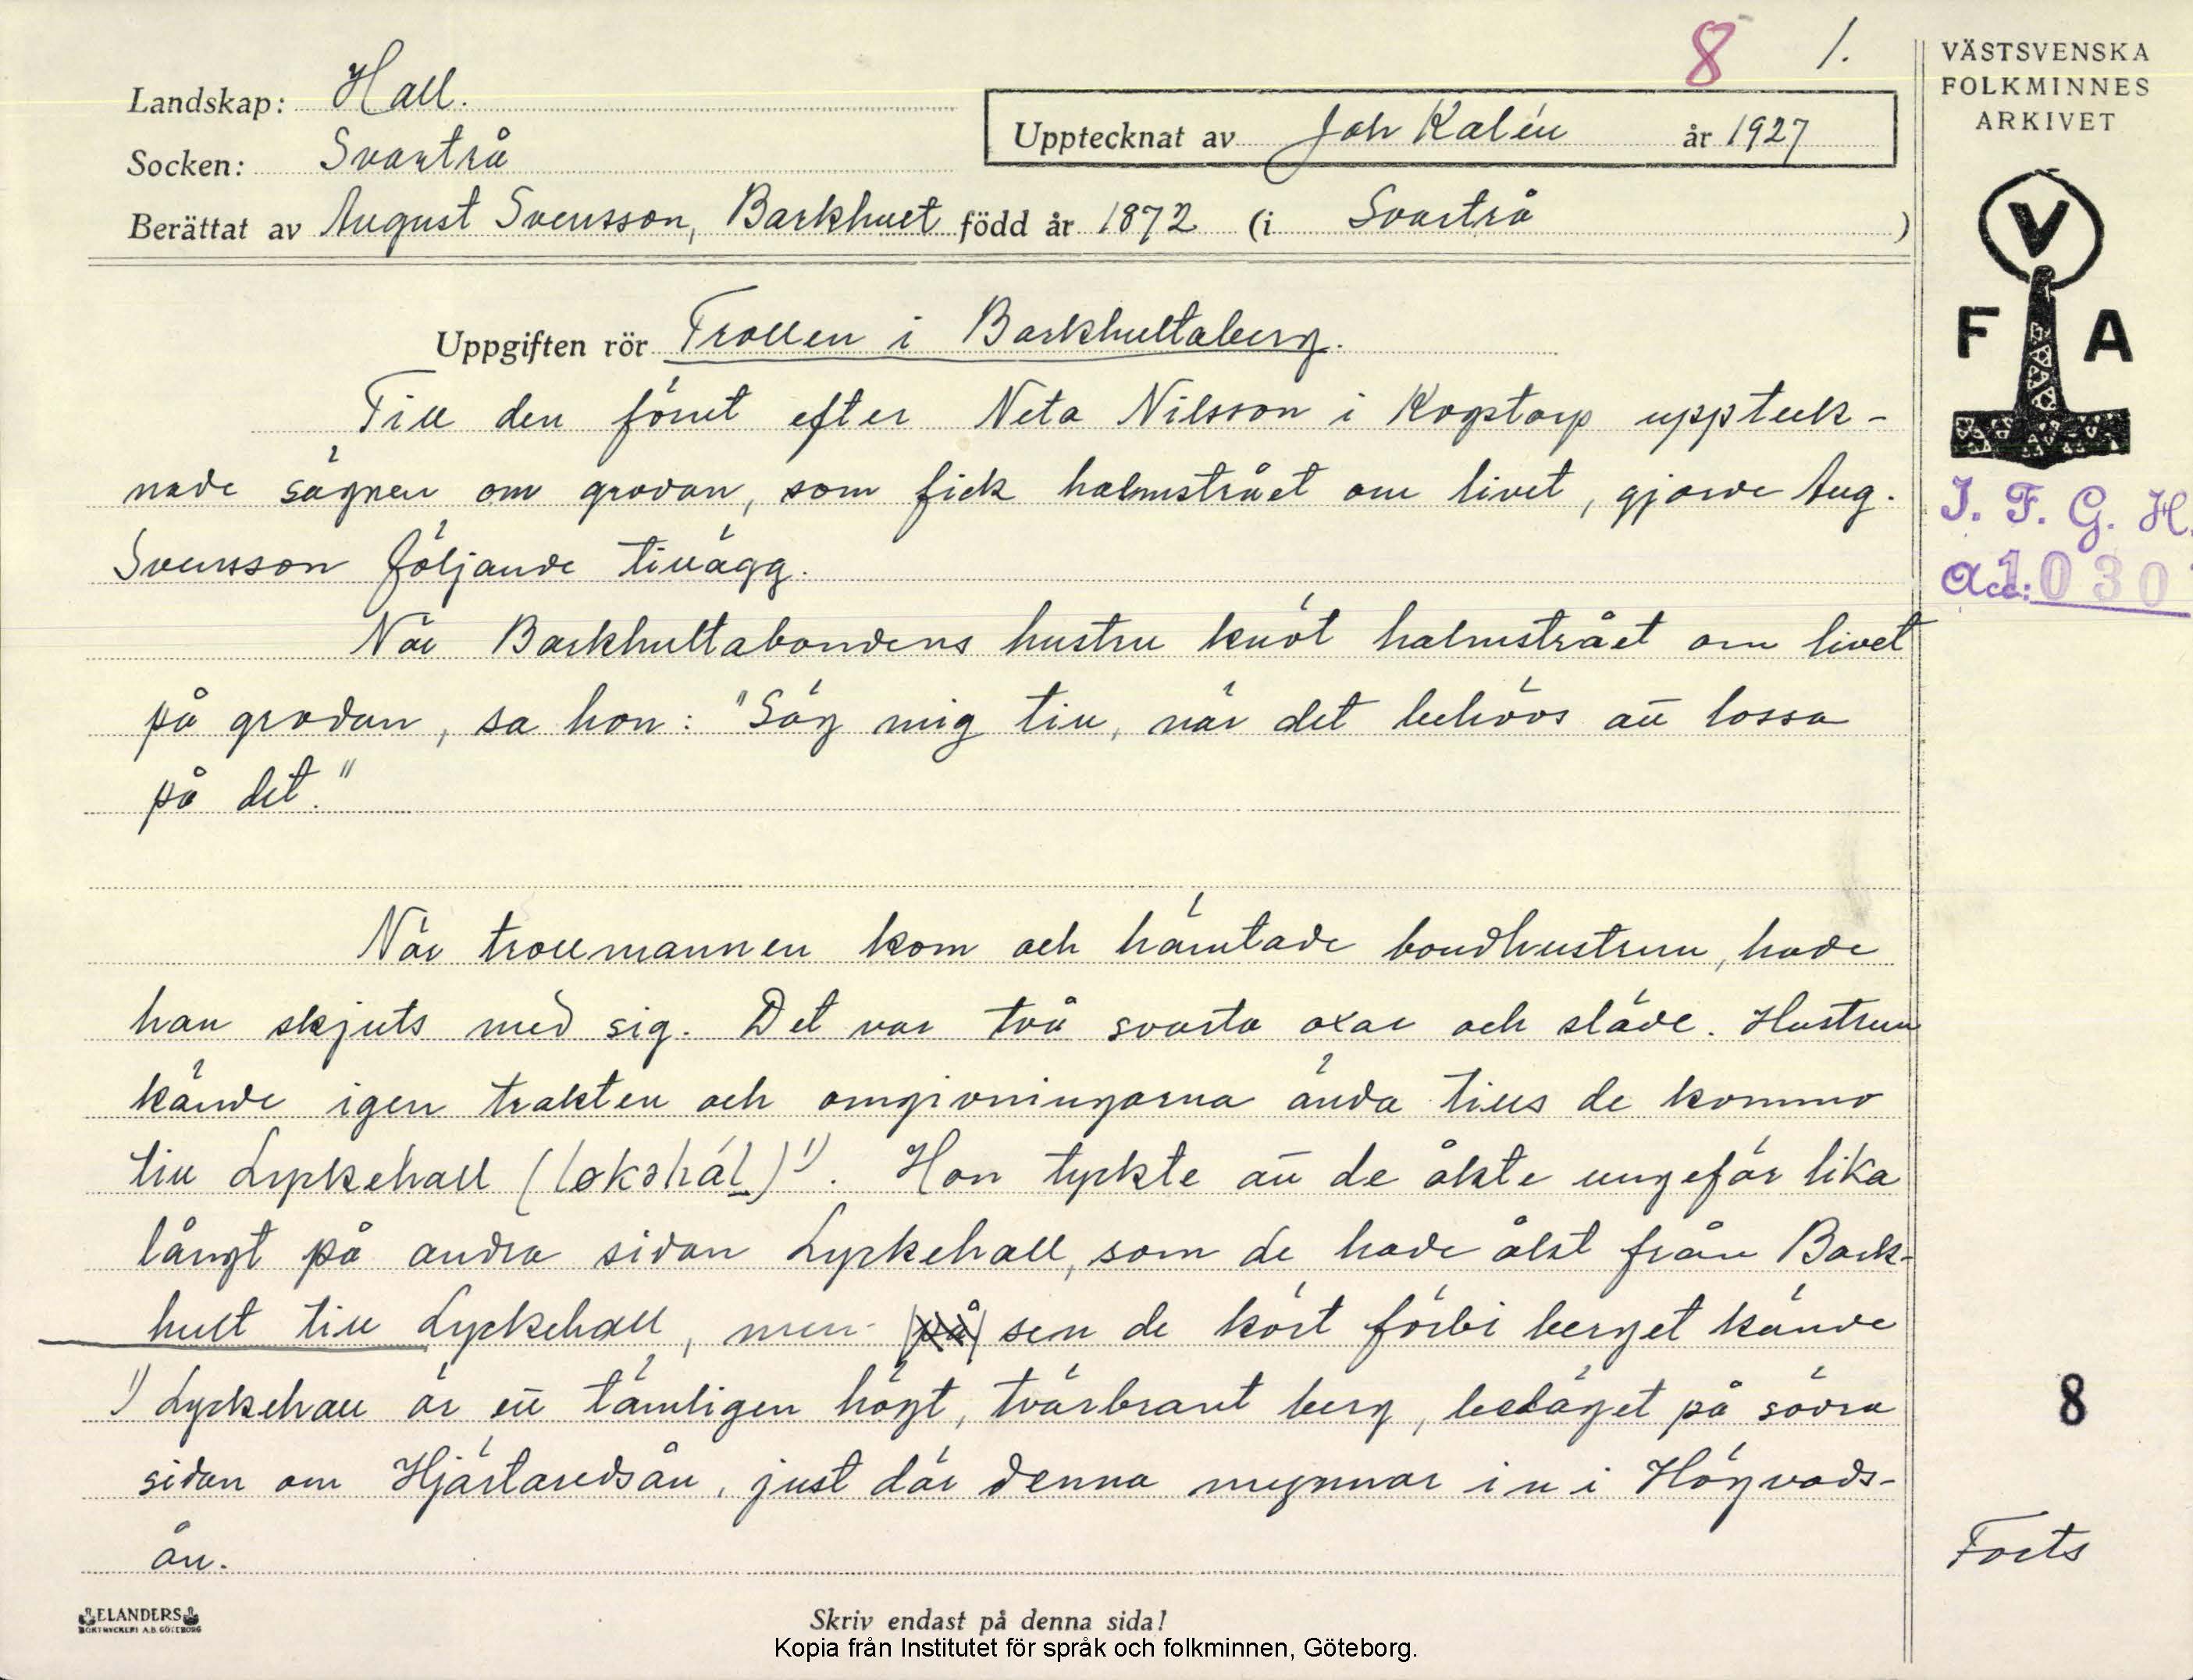 8 1.
VÄSTSVENSKA
FOLKMINNES
ARKIVET
Landskap: Hall.
Socken: Svartrå
Upptecknat av Joh Kalén år 1927
Berättat av August Svensson, Barkhult född år 1872 (i Svartrå )
V
F A
I. F. G. H.
Acc: 1030
Uppgiften rör Trollen i Barkhultaberg.
Till den förut efter Neta Nilsson i Kogstorp uppteck-
nade sägnen om grodan, som fick halmstrået om livet, gjorde Aug.
Svensson följande tillägg.
När Barkhultabondens hustru knöt halmstrået om livet
på grodan, sa hon: "Säg mig till, när det behövs att lossa
på det."
När trollmannen kom och hämtade bondhustrun, hade
han skjuts med sig. Det var två svarta oxar och släde. Hustrun
kände igen trakten och omgivningarna ända tills de kommo
till Lyckehall (løkəhál)¹⁾. Hon tyckte att de åkte ungefär lika
långt på andra sidan Lyckehall, som de hade åkt från Bark-
hult till Lyckehall, men (på) sen de kört förbi berget kände
¹⁾ Lyckehall är ett tämligen högt, tvärbrant berg, beläget på södra
sidan om Hjärtaredsån, just där denna mynnar in i Högvads-
ån.
8
Forts
ELANDERS
BOKTRYCKERI A.B. GÖTEBORG
Skriv endast på denna sida!
Kopia från Institutet för språk och folkminnen, Göteborg.